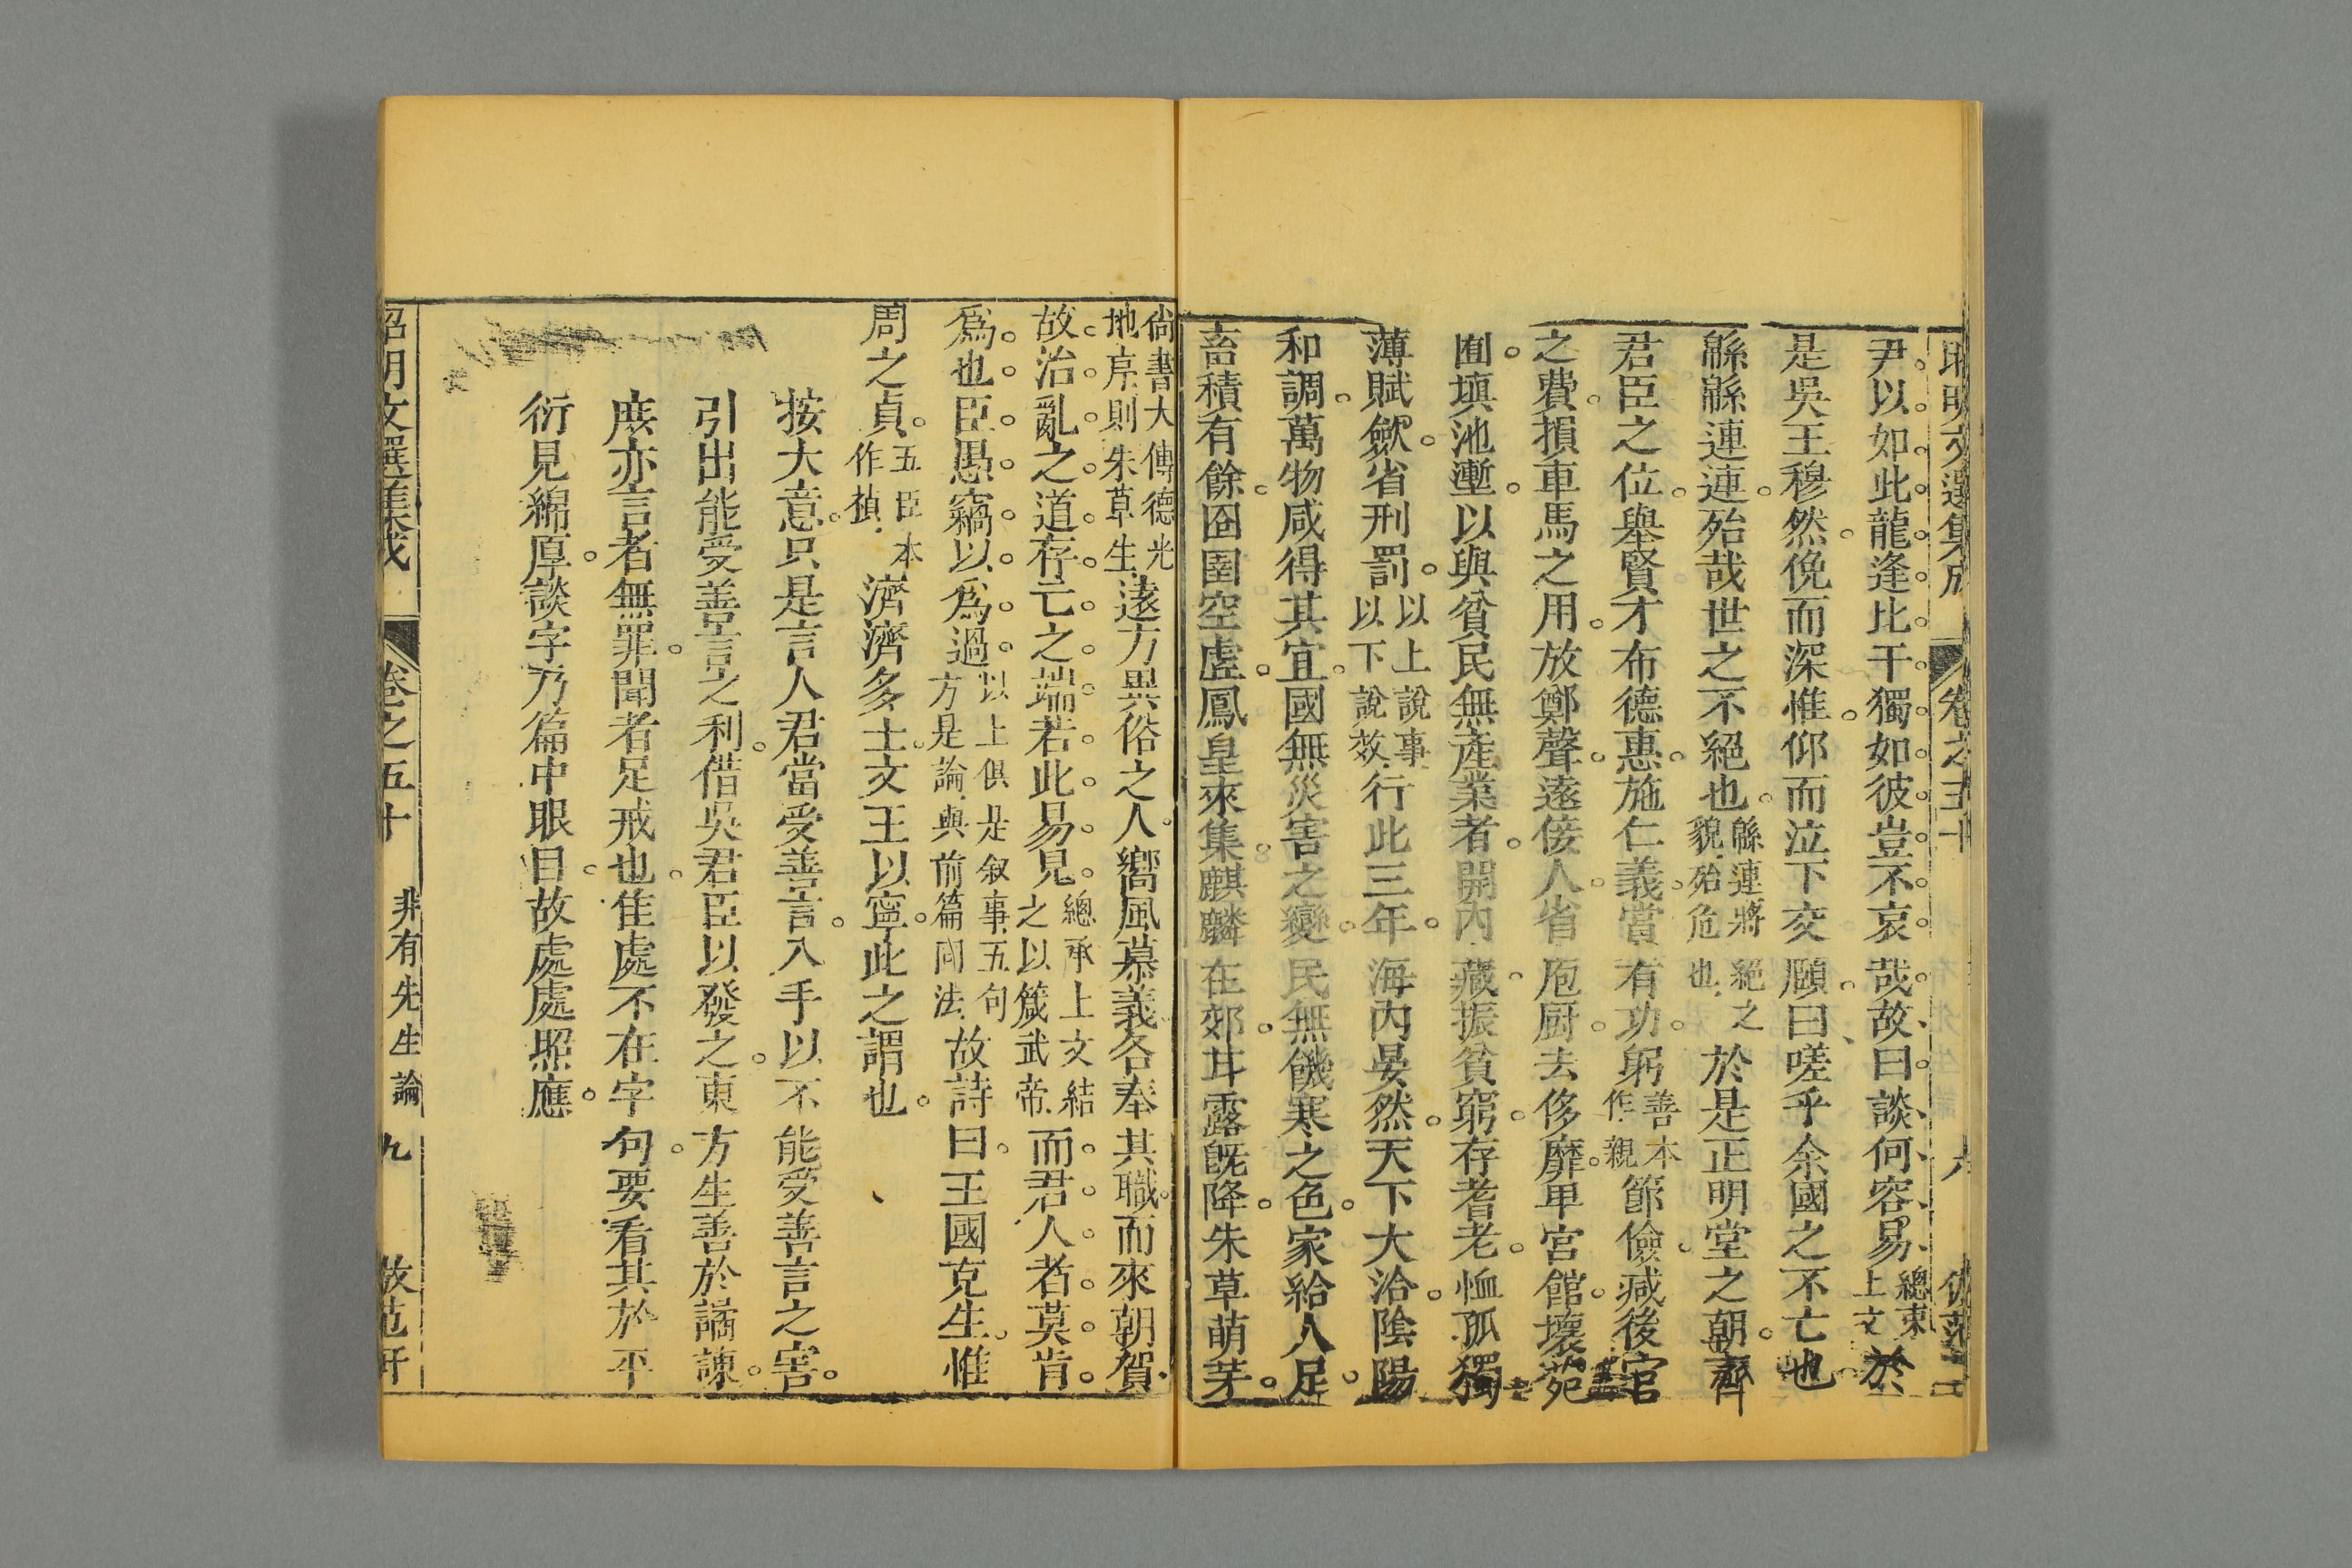 昭明文選集成 卷之五十 六
尹以如此龍逢比干獨如彼豈不哀哉故曰談何容易總束上文於
是吳王穆然俛而深惟仰而泣下交頤曰嗟乎余國之不亡也
緜緜連連殆哉世之不絕也緜連將絕之貌殆危也於是正明堂之朝齊
君臣之位舉賢才布德惠施仁義賞有功躬善本作親節儉減後宮
之費損車馬之用放鄭聲遠佞人省庖厨去侈靡卑宮館壞苑
囿塡池壍以與貧民無產業者開內藏振貧窮存耆老恤孤獨
薄賦斂省刑罰以上說事以下說效行此三年海內晏然天下大洽陰陽
和調萬物咸得其宜國無災害之變民無饑寒之色家給人足
畜積有餘囹圄空虛鳳皇來集麒麟在郊甘露旣降朱草萌芽
尙書大傳德光地序則朱草生遠方異俗之人嚮風慕義各奉其職而來朝賀
故治亂之道存亡之端若此易見總承上文結之以箴武帝而君人者莫肯
爲也臣愚竊以爲過以上俱是叙事五句方是論與前篇同法故詩曰王國克生惟
周之貞五臣本作楨濟濟多士文王以寧此之謂也
按大意只是言人君當受善言入手以不能受善言之害
引出能受善言之利借吳君臣以發之東方生善於譎諫
庶亦言者無罪聞者足戒也佳處不在字句要看其於平
衍見綿厚談字乃篇中眼目故處處照應
昭明文選集成 卷之五十 非有先生論 九 倣范軒